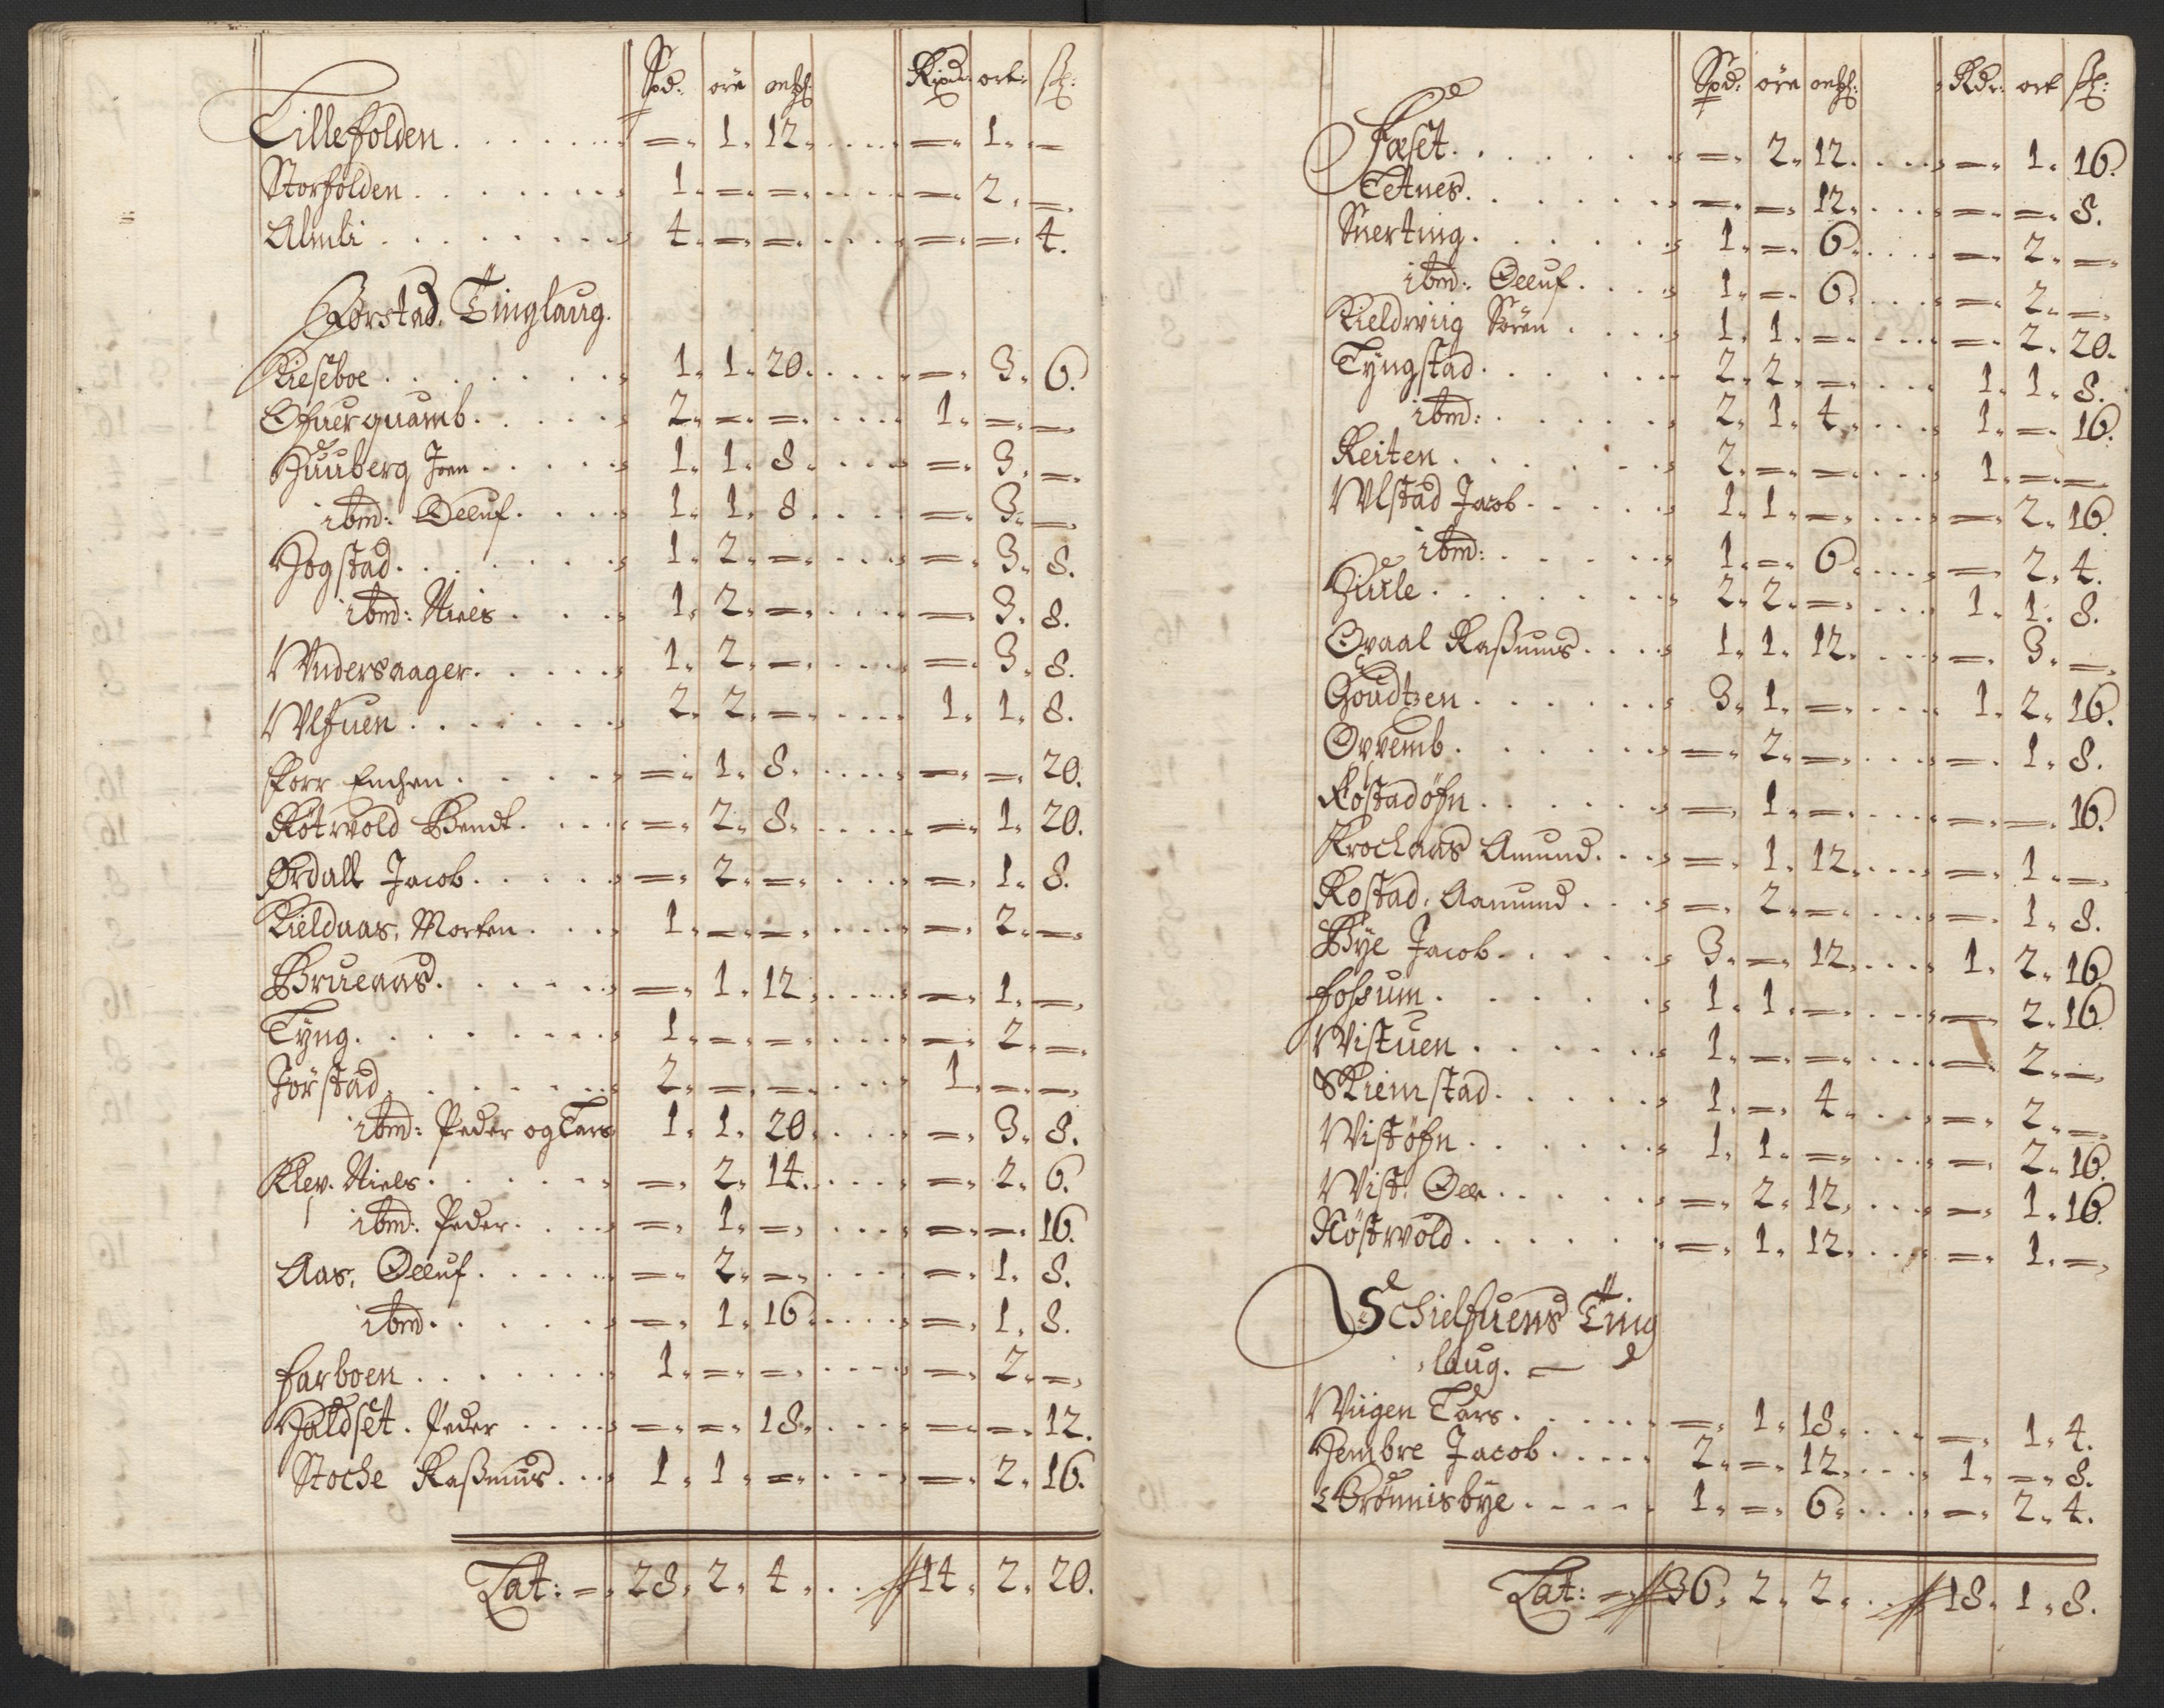 Spd: öre mk: Rixdr: ort: sk:
Lillefolden . . . =. 1. 12. . . . =. 1. =
Storfolden . . . 1. =. =. . . . =. 2. =.
Almli . . . 4. =. =. . . . =. =. 4.
Jørstad Tinglaug.
Kieseboe . . . 1. 1. 20. . . . =. 3. 6.
Ofuerquamb . . . 2. =. =. . . . 1. =. =.
Huuberg Joen . . . 1. 1. 8. . . . =. 3. =.
ibm: Oeluf . . . 1. 1. 8. . . . =. 3. =.
Hogstad . . . 1. 2. =. . . . =. 3. 8.
ibm: Niels . . . 1. 2. =. . . . =. 3. 8.
Vndersaager . . . 1. 2. =. . . . =. 3. 8.
Vlfuen . . . 2. 2. =. . . . 1. 1. 8.
=. 1. 8. . . . =. =. 20.
Rötwold Bendt . . . =. 2. 8. . . . =. 1. 20.
Ørdall Jacob . . . =. 2. =. . . . =. 1. 8.
Kieldaas, Morten . . . 1. =. =. . . . =. 2. =.
Brueaas . . . =. 1. 12. . . . =. 1. =.
Tyng . . . 1. =. =. . . . =. 2. =.
Jörstad . . . 2. =. =. . . . 1. =. =.
ibm: Peder og Lars 1. 1. 20. . . . =. 3. 8.
Klev. Niels . . . =. 2. 14. . . . =. 2. 6.
ibm: Peder . . . =. 1. =. . . . =. =. 16.
Aas, Oeluf . . . =. 2. =. . . . =. 1. 8.
ibm . . . =. 1. 16. . . . =. 1. 8.
Farboen . . . 1. =. =. . . . =. 2. =.
Haldset. Peder . . . =. =. 18. . . . =. =. 12.
Stoche Rasmus . . . 1. 1. =. . . . =. 2. 16.
Lat: =. 28. 2. 4. . . 14. 2. 20.
Spd: öre mk: Rdr: ort sk:
Foset . . . =. 2. 12. . . . =. 1. 16.
Letnes . . . =. =. 12. . . . =. =. 8.
Snerting . . . 1. =. 6. . . . =. 2. =.
ibm: Oeluf . . . 1. =. 6. . . . =. 2. =.
Kieldwiig Sören . . . 1. 1. =. . . . =. 2. 20.
Tyngstad . . . 2. 2. =. . . . 1. 1. 8.
ibm: . . . 2. 1. 4. . . . 1. =. 16.
Reiten . . . 2. =. =. . . . 1. =. =.
Vlstad Jacob . . . 1. 1. =. . . . =. 2. 16.
ibm: . . . 1. =. 6. . . . =. 2. 4.
Huule . . . 2. 2. =. . . . 1. 1. 8.
Qvaal Rasmus . . . 1. 1. 12. . . . =. 3. =.
Goudtzen . . . 3. 1. =. . . . 1. 2. 16.
Qvvemb . . . =. 2. =. . . . =. 1. 8.
Röstadöfn . . . =. 1. =. . . . =. =. 16.
Kroclaas Amund . . . =. 1. 12. . . . =. 1. =.
Rostad, Aamund . . . =. 2. =. . . . =. 1. 8.
Bye Jacob . . . 3. =. 12. . . . 1. 2. 16.
Fossum . . . 1. 1. =. . . . =. 2. 16.
Vistuen . . . 1. =. =. . . . =. 2. =.
Skiemstad . . . 1. =. 4. . . . =. 2. =.
Vistöfn . . . 1. 1. =. . . . =. 2. 16.
Vist: Ole . . . =. 2. 12. . . . =. 1. 16.
Nöstwold . . . =. 1. 12. . . . =. 1. =.
Schielfuens Ting
laug.
Viigen Lars . . . =. 1. 18. . . . =. 1. 4.
Hembre Jacob . . . 2. =. 12. . . . 1. =. 8.
Brönnisbye . . . 1. =. 6. . . . =. 2. 4.
Lat: = 36. 2. 2. . . 18. 1. 8.